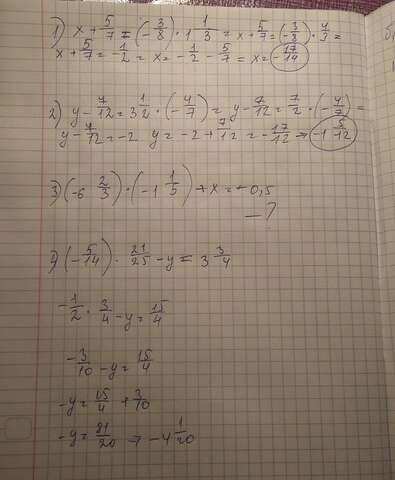 1) x + 5/7 = (- 3/8) · 1 1/3 = x + 5/7 = (3/-8) · 4/3 =
x + 5/7 = -1/2 = x = - 1/2 - 5/7 = x = - 17/14
2) y - 7/12 = 3 1/2 · (- 4/7) = y - 7/12 = 7/2 · (- 4/7) =
y - 7/12 = -2 y = -2 + 7/12 = - 17/12 → -1 5/12
3) (-6 2/3) · (-1 1/5) + x = -0,5
- ?
4) (- 5/14) · 21/25 - y = 3 3/4
- 1/2 · 3/4 - y = 15/4
- 3/10 - y = 15/4
-y = 15/4 + 3/10
-y = 81/20 → -4 1/20